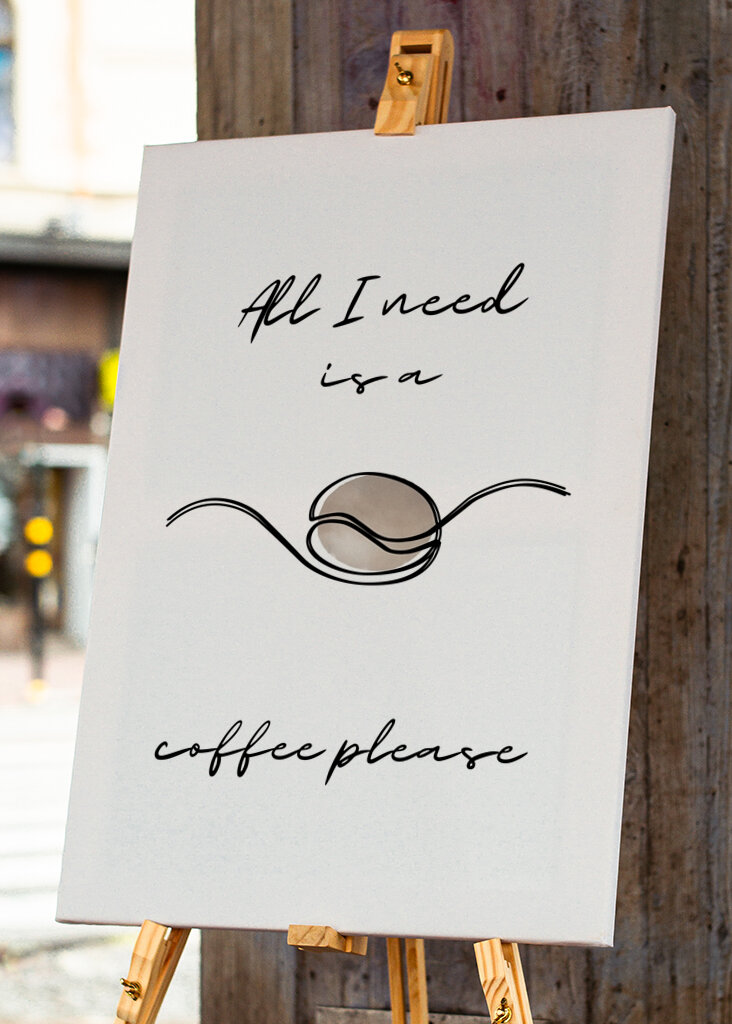 All I need
is a
coffee please